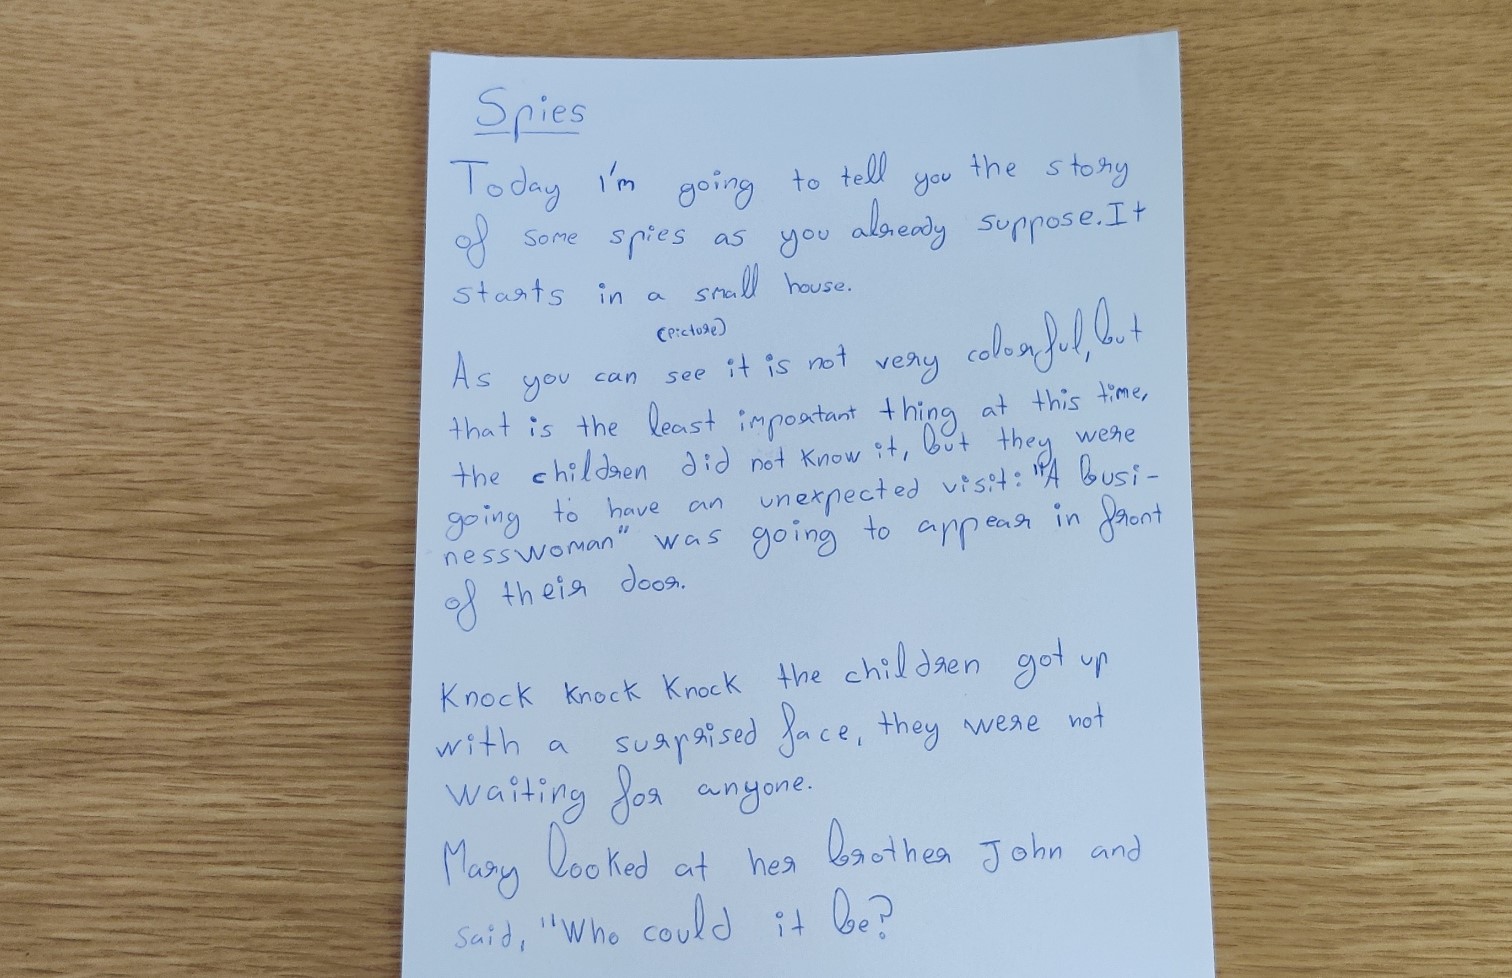 Spies
Today I'm going to tell you the story
of some spies as you already suppose. It
starts in a small house.
(picture)
As you can see it is not very colorful, but
that is the least important thing at this time,
the children did not know it, but they were
going to have an unexpected visit: "A busi-
nesswoman" was going to appear in front
of their door.
Knock Knock Knock the children got up
with a surprised face, they were not
waiting for anyone.
Mary looked at her brother John and
said, "Who could it be?